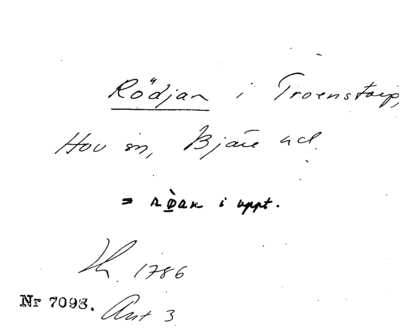 Rödjan i Troenstorp,
Hov sn, Bjäre hd.
= rø̀an i uppt.
Lh. 1786
Nr 7098. Ant 3